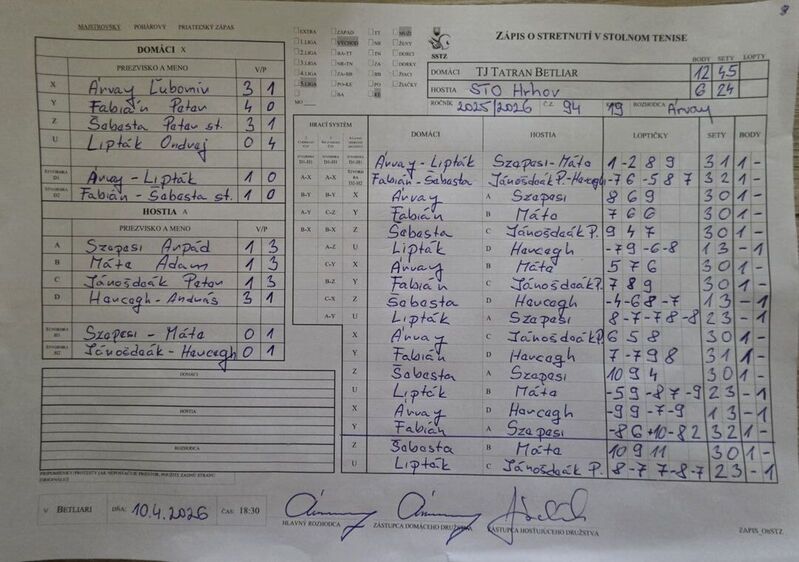 8
MAJSTROVSKÝ POHÁROVÝ PRIATEĽSKÝ ZÁPAS
DOMÁCI X
PRIEZVISKO A MENO V/P
X Árvay Ľubomír 3 1
Y Fabián Peter 4 0
Z Šebasta Peter st. 3 1
U Lipták Ondrej 0 4
ŠTVORHRA D1 Árvay - Lipták 1 0
ŠTVORHRA D2 Fabián - Šebasta st. 1 0
HOSTIA A
PRIEZVISKO A MENO V/P
A Szapesi Arpád 1 3
B Máta Adam 1 3
C Jánošdeák Peter 1 3
D Hencagh András 3 1
ŠTVORHRA H1 Szapesi - Máta 0 1
ŠTVORHRA H2 Jánošdeák - Hencagh 0 1
DOMÁCI
HOSTIA
ROZHODCA
EXTRA ZÁPAD TT MUŽI
1.LIGA VÝCHOD NR ŽENY
2.LIGA BA-TT TN DORCI
3.LIGA NR-TN ZA DORKY
4.LIGA ZA-BB BB ŽIACI
5.LIGA PO-KE PO ŽIAČKY
BA KE
MO
SSTZ
ZÁPIS O STRETNUTÍ V STOLNOM TENISE
BODY SETY LOPTY
DOMÁCI TJ TATRAN BETLIAR 12 45
HOSTIA STO Hrhov 6 24
ROČNÍK 2025/2026 Č.Z. 94 19 ROZHODCA Árvay
HRACÍ SYSTÉM DOMÁCI HOSTIA LOPTIČKY SETY BODY
Árvay - Lipták Szapesi - Máta 1 -2 8 9 3 1 1 -
A-X A-X Fabián - Šebasta Jánošdeák P. - Hencagh -7 6 -5 8 7 3 2 1 -
B-Y B-Y X Árvay A Szapesi 8 6 9 3 0 1 -
A-Y C-Z Y Fabián B Máta 7 6 6 3 0 1 -
B-X B-X Z Šebasta C Jánošdeák P. 9 4 7 3 0 1 -
A-Z U Lipták D Hencagh -7 9 -6 -8 1 3 - 1
C-Y X Árvay B Máta 5 7 6 3 0 1 -
B-Z Y Fabián C Jánošdeák P. 7 8 9 3 0 1 -
C-X Z Šebasta D Hencagh -4 -6 8 -7 1 3 - 1
A-Y U Lipták A Szapesi 8 -7 -7 8 -8 2 3 - 1
X Árvay C Jánošdeák P. 6 5 8 3 0 1 -
Y Fabián D Hencagh 7 -7 9 8 3 1 1 -
Z Šebasta A Szapesi 10 9 4 3 0 1 -
U Lipták B Máta -5 9 -8 7 -9 2 3 - 1
X Árvay D Hencagh -9 9 -7 -9 1 3 - 1
Y Fabián A Szapesi -8 6 10 -8 2 3 2 1 -
Z Šebasta B Máta 10 9 11 3 0 1 -
U Lipták C Jánošdeák P. 8 -7 7 -8 -7 2 3 - 1
V BETLIARI DŇA: 10.4.2026 ČAS: 18:30
HLAVNÝ ROZHODCA ZÁSTUPCA DOMÁCEHO DRUŽSTVA ZÁSTUPCA HOSŤUJÚCEHO DRUŽSTVA
ZÁPIS_ObSTZ